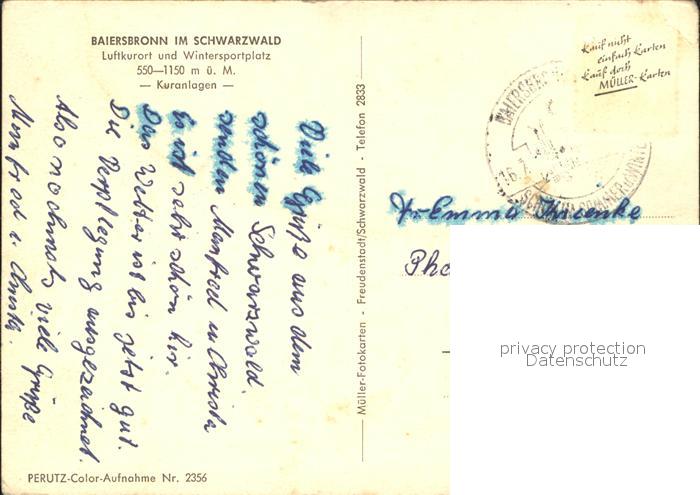 BAIERSBRONN IM SCHWARZWALD
Luftkurort und Wintersportplatz
550—1150 m ü. M.
— Kuranlagen —
Viele Grüße aus dem
schönen Schwarzwald.
senden Manfred u. Christa
Es ist sehr schön hir.
Das Wetter ist bis jetzt gut.
Die Verpflegung ausgezeichnet.
Also nochmals viele Grüße
Manfred u. Christa.
PERUTZ-Color-Aufnahme Nr. 2356
Müller-Fotokarten - Freudenstadt/Schwarzwald - Telefon 2833
Kauf nicht
einfach Karten
Kauf doch
MÜLLER-Karten
16.
Fr. Emma
privacy protection
Datenschutz